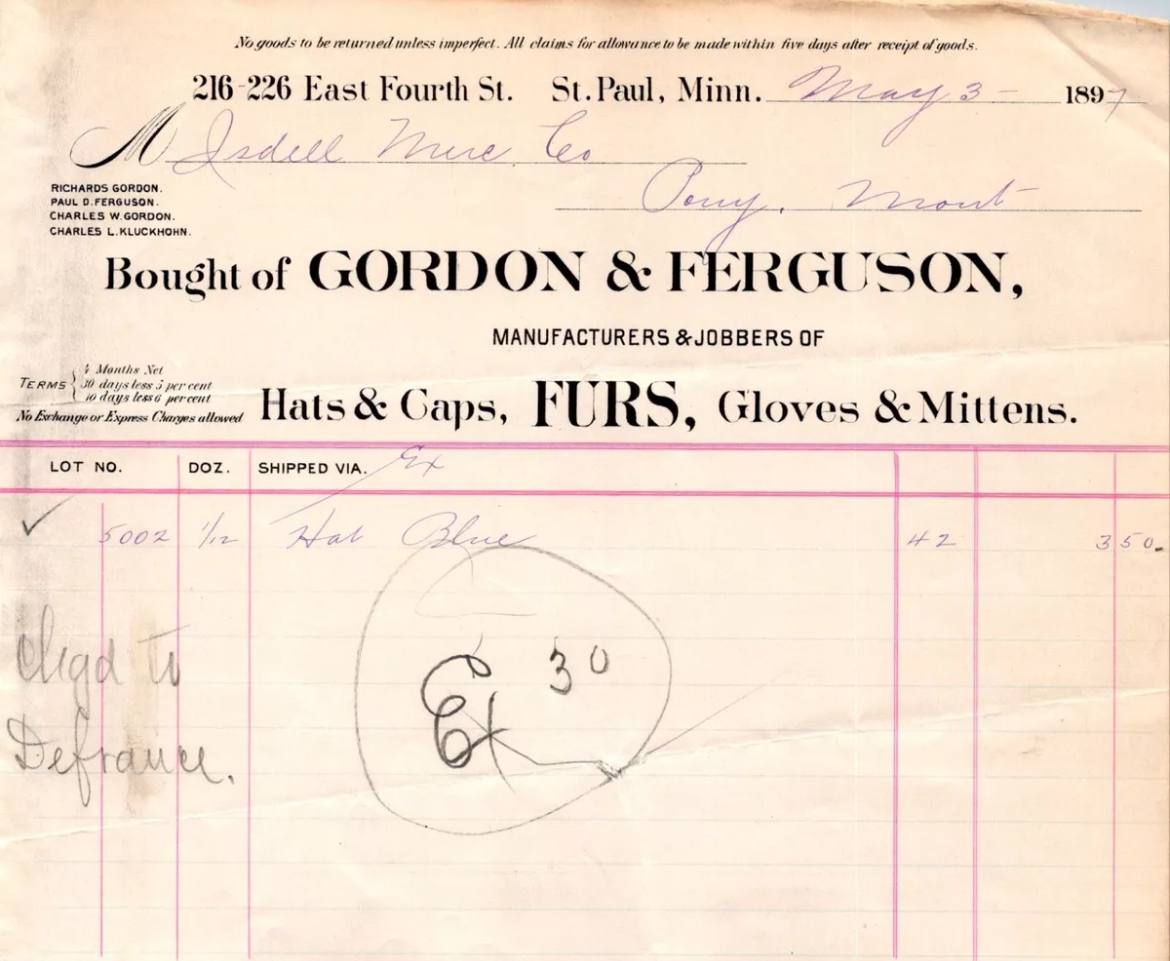 No goods to be returned unless imperfect. All claims for allowance to be made within five days after receipt of goods.
216-226 East Fourth St. St. Paul, Minn. May 3 - 1897
M Isdell Merc. Co
Pony, Mont
RICHARDS GORDON.
PAUL D. FERGUSON.
CHARLES W. GORDON.
CHARLES L. KLUCKHOHN.
Bought of GORDON & FERGUSON,
MANUFACTURERS & JOBBERS OF
TERMS { 4 Months Net
30 days less 5 per cent
10 days less 6 per cent
No Exchange or Express Charges allowed
Hats & Caps, FURS, Gloves & Mittens.
LOT NO. DOZ. SHIPPED VIA. Ex
✓ 5002 1/12 Hat Blue 42 350
Chgd to
Defrance.
Ex 30